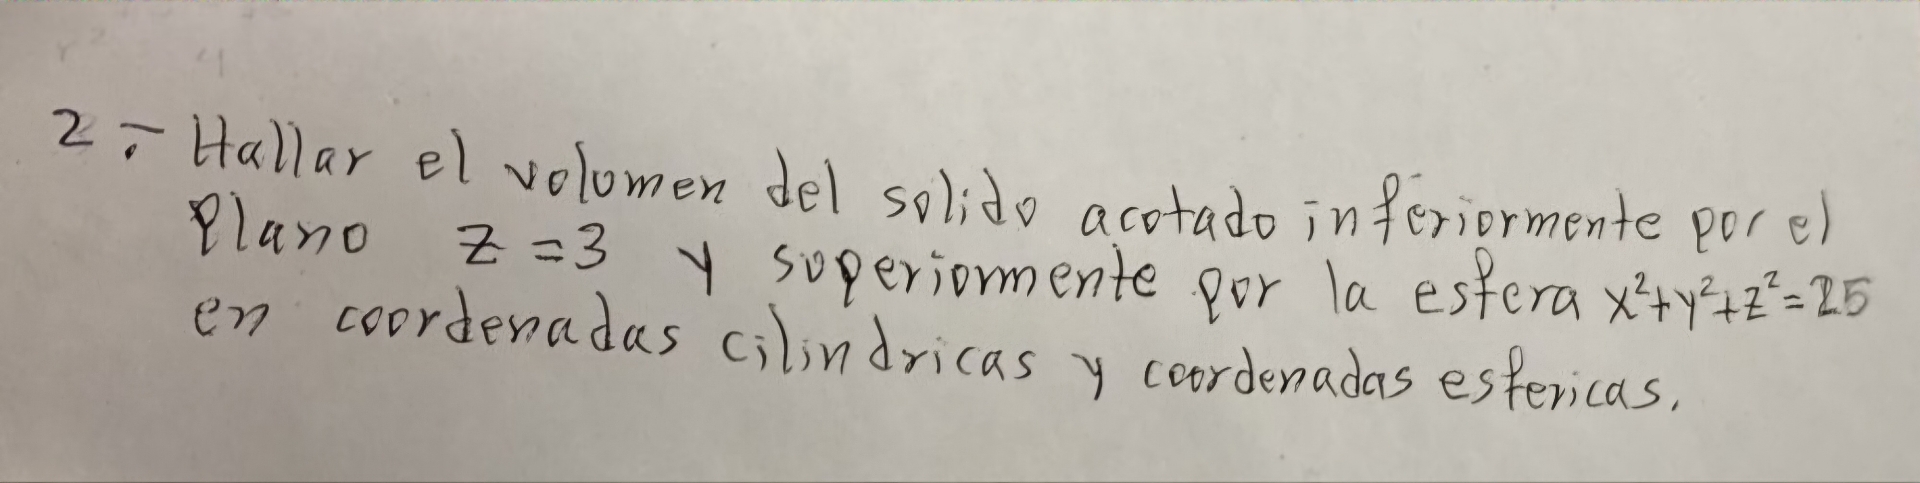 2.- Hallar el volumen del solido acotado inferiormente por el
Plano z = 3 y superiormente por la esfera x²+y²+z²=25
en coordenadas cilindricas y coordenadas esfericas.